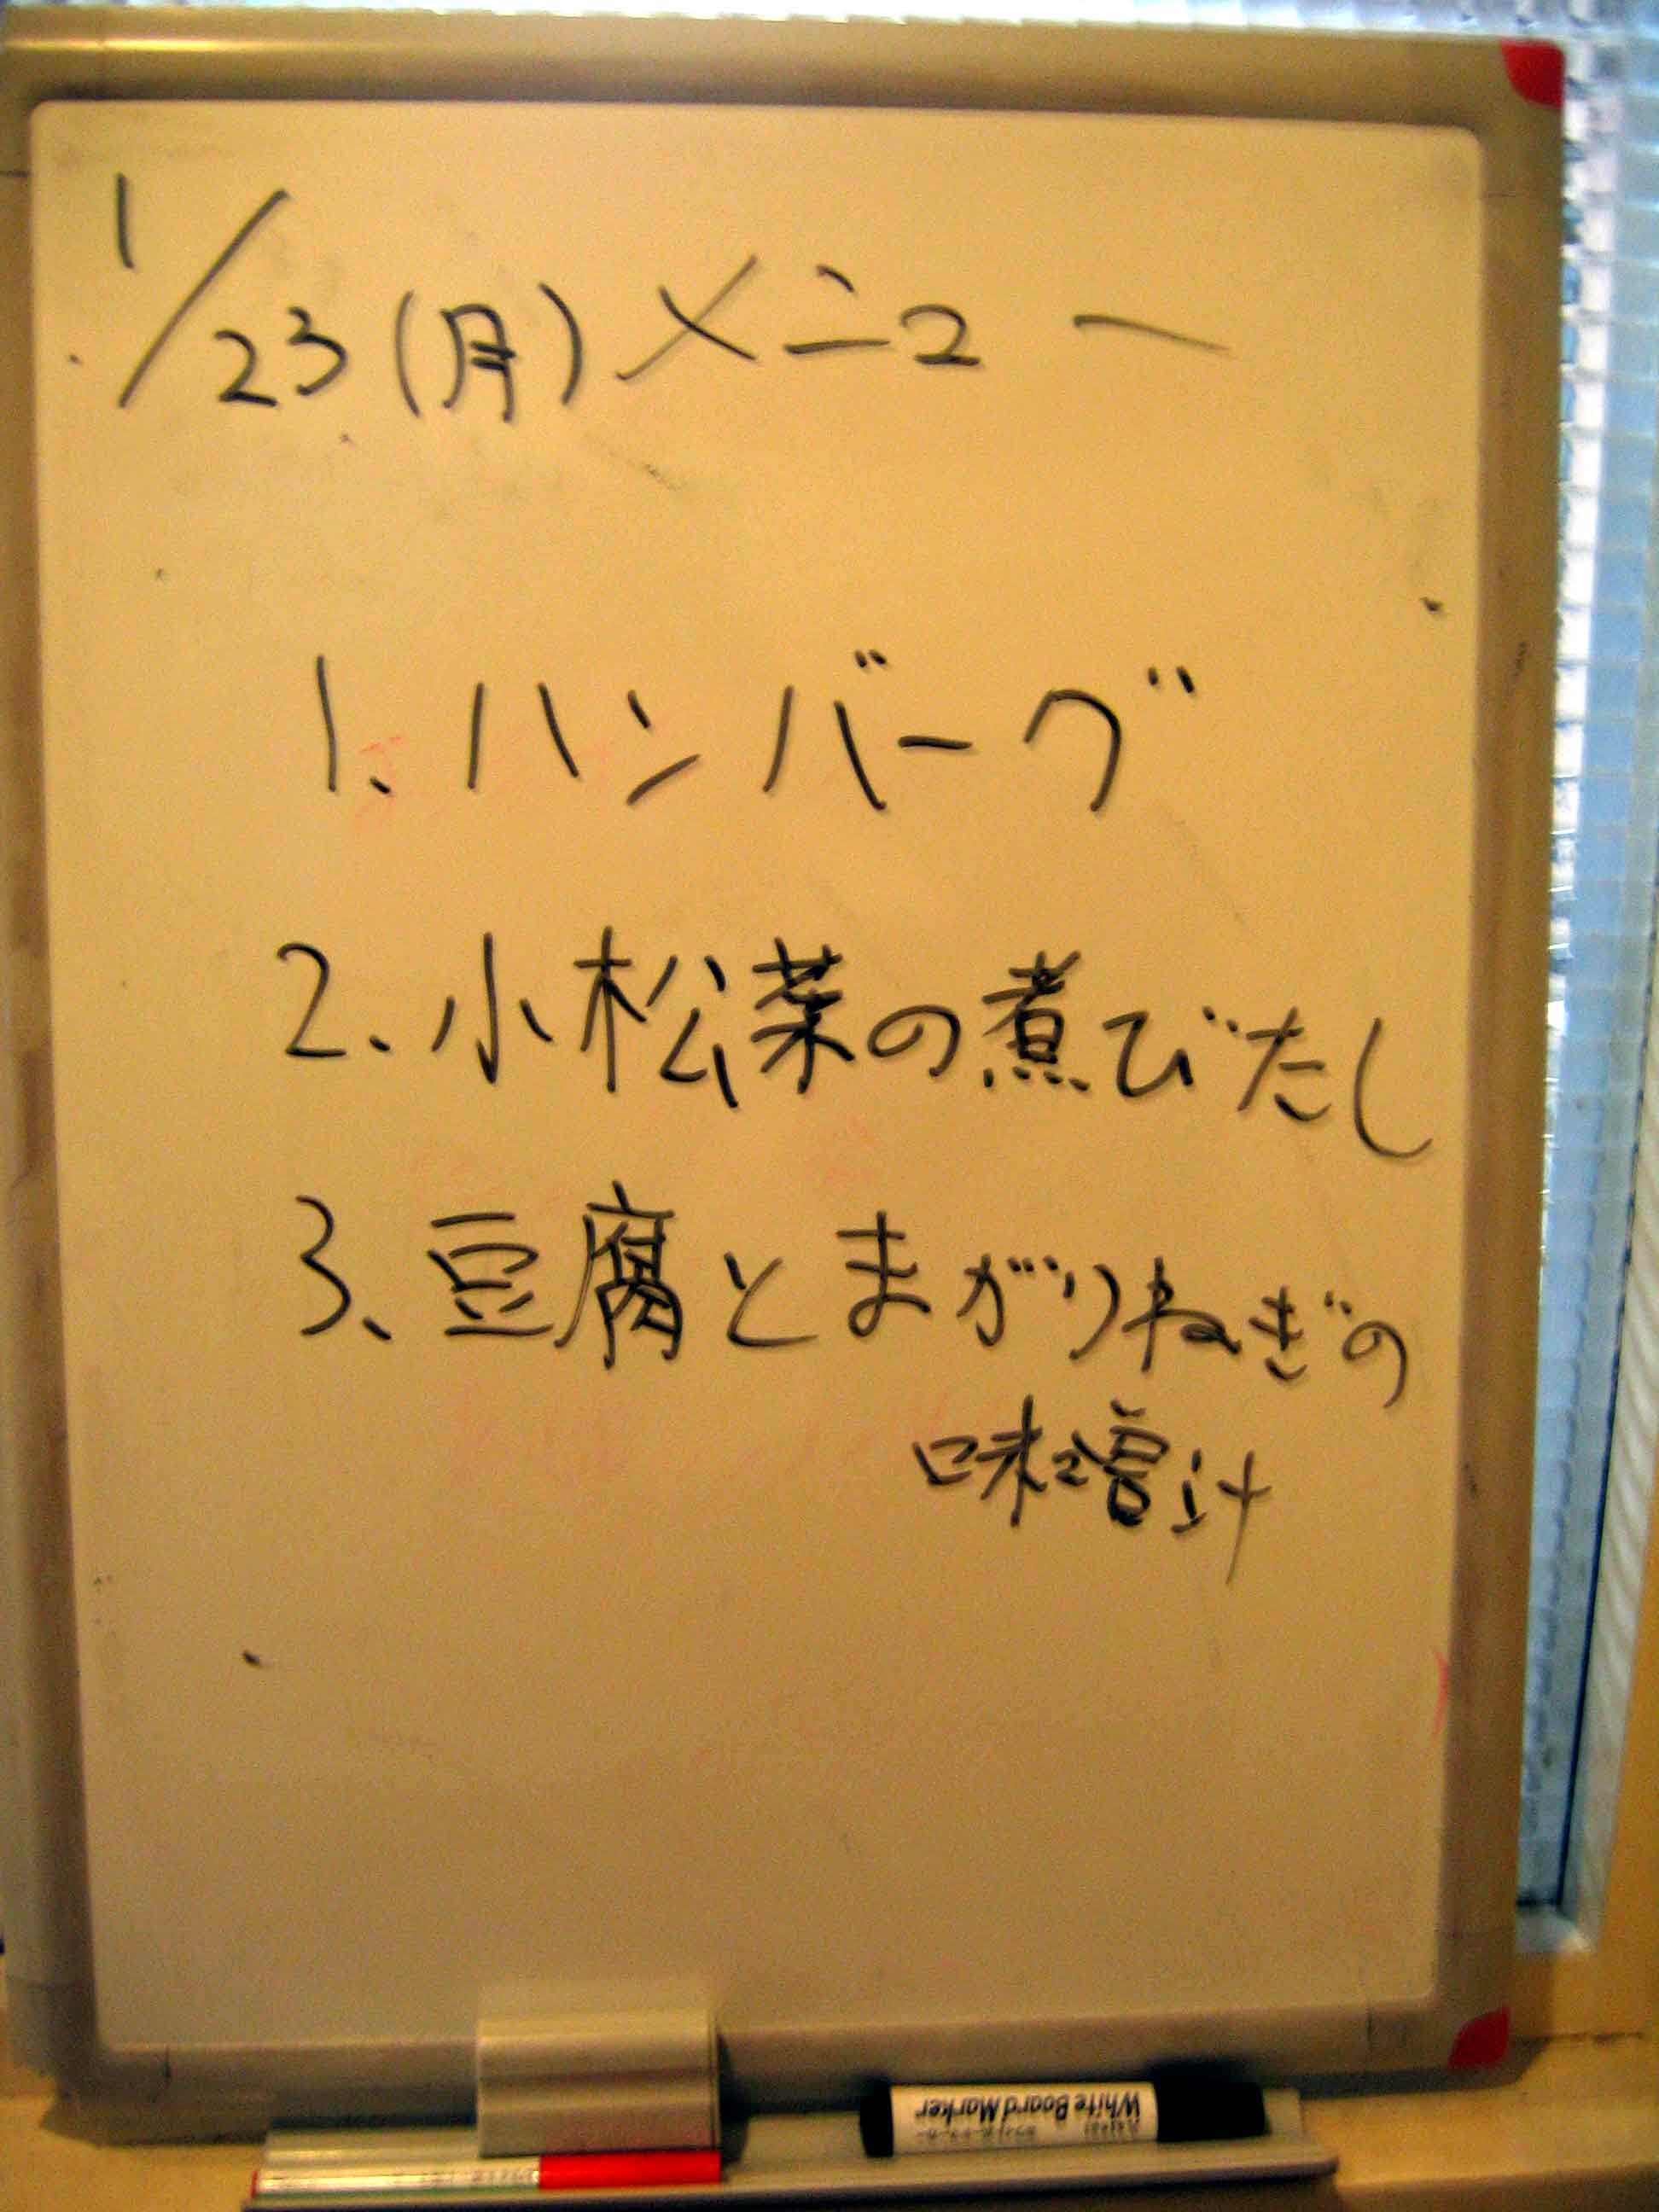 1/23(月)メニュー
1、ハンバーグ
2、小松菜の煮びたし
3、豆腐とまがりねぎの
味噌汁
White Board Marker